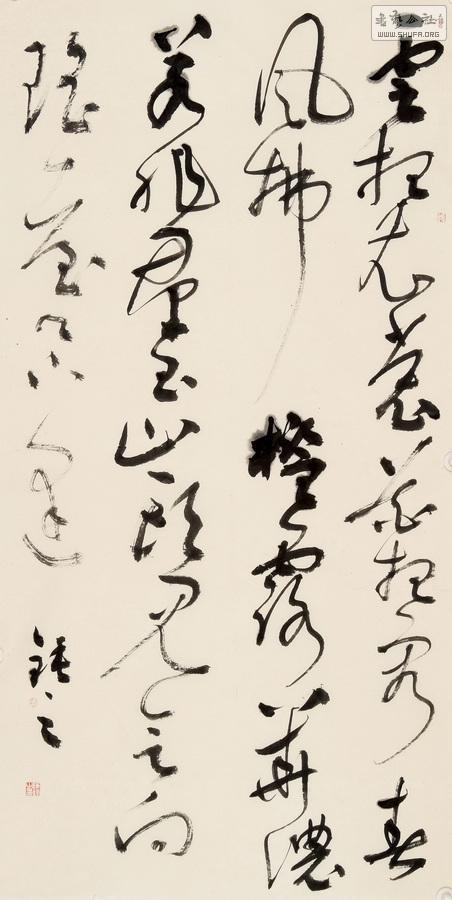 雲想衣裳花想容春
風拂檻露華濃
若非群玉山頭見會向
瑤臺月下逢
WWW.SHUFA.ORG